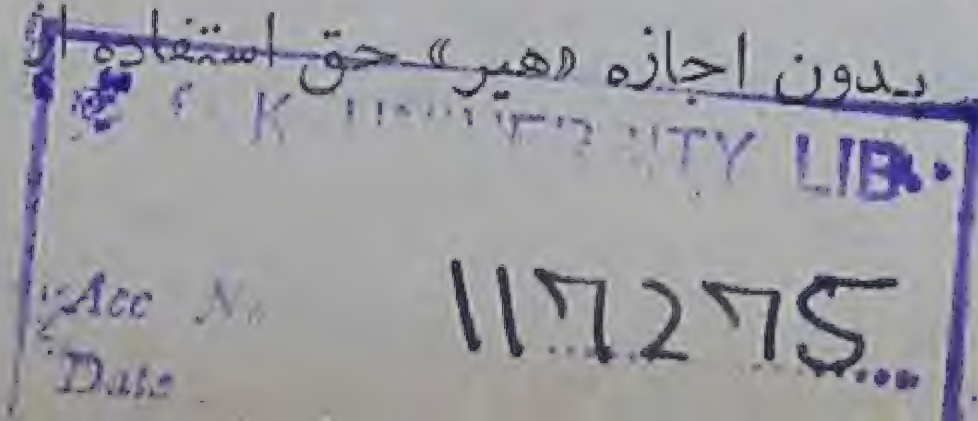 بدون اجازه «هیر» حق استفاده از
K UNIVERSITY LIB
Acc No 117275
Date